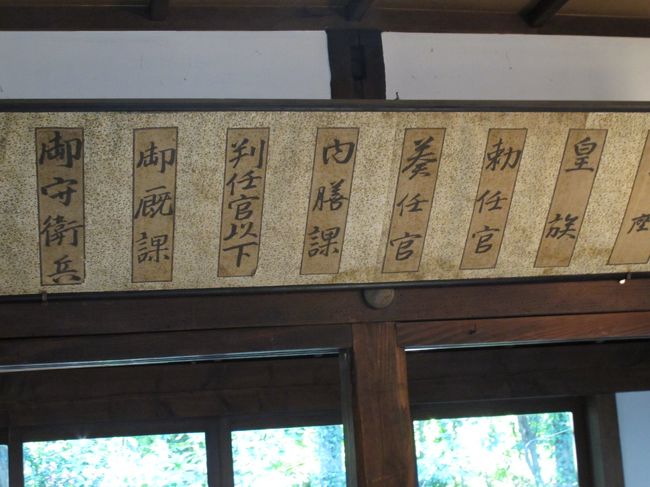 座
皇族
勅任官
奏任官
内膳課
判任官以下
御厩課
御守衛兵